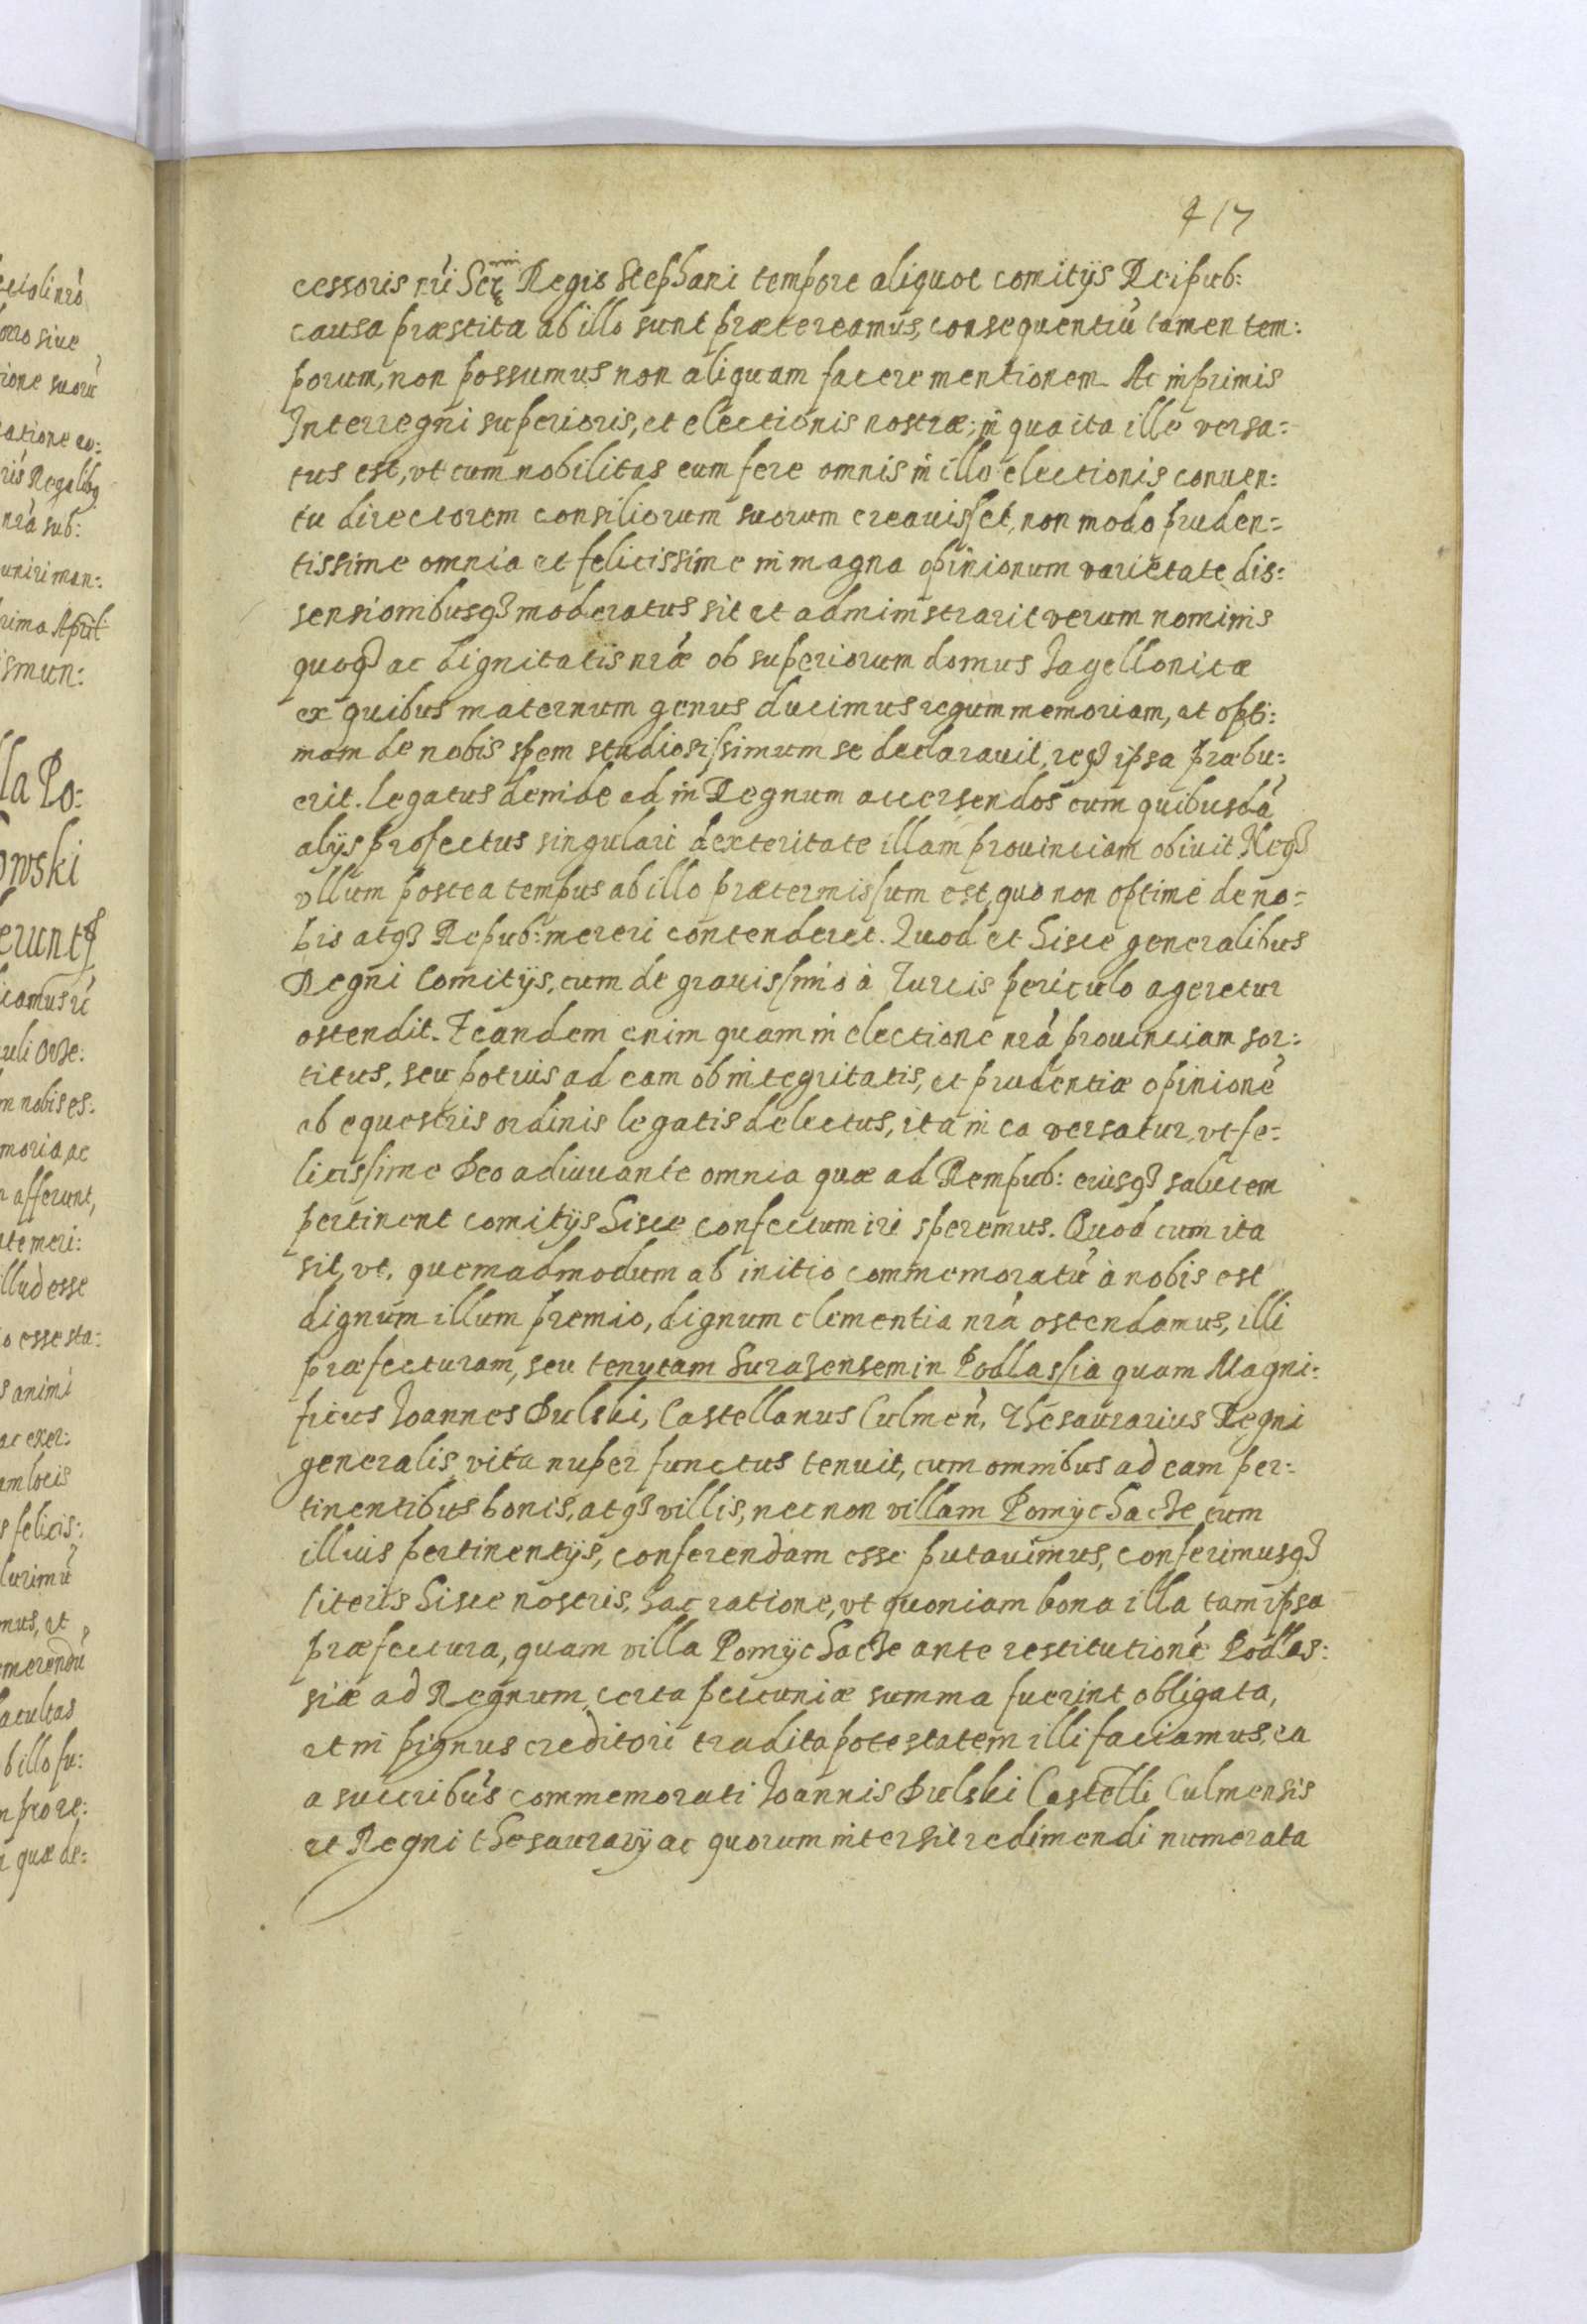 417
cessoris nri Ser.mi Regis Stephani tempore aliquot comitijs Reipub:
causa præstita ab illo sunt prætereamus, consequentiũ tamen tem:
porum, non possumus non aliquam facere mentionem. Ac inprimis
Interregni superioris, et electionis nostræ; in qua ita ille versa:
tus est, vt cum nobilitas eum fere omnis in illo electionis conuen:
tu directorem consiliorum suorum creauisset, non modo pruden:
tissime omnia et felicissime in magna opinionum varietate dis:
sensionibusq3 moderatus sit et administrarit verum nominis
quoq3 ac dignitatis nræ ob superiorum domus Jagellonicæ
ex quibus maternum genus ducimus regum memoriam, et opti:
mam de nobis spem studiosissimum se declarauit, req3 ipsa præbu:
erit. Legatus deinde ad in Regnum accersendos cum quibusdã
alijs profectus singulari dexteritate illam prouinciam obiuit Neq3
vllum postea tempus ab illo prætermissum est, quo non optime de no:
bis atq3 Repub: mereri contenderet. Quod et hisce generalibus
Regni Comitijs, cum de grauissimo à Turcis periculo ageretur
ostendit. Eandem enim quam in electione nrà prouinciam sor:
titus, seu potius ad eam ob integritatis, et prudentiæ opinionẽ
ab equestris ordinis legatis delectus, ita in ea versatur, vt fe:
licissime Deo adiuuante omnia quæ ad Rempub: eiusq3 salutem
pertinent comitijs hisce confectum iri speremus. Quod cum ita
sit, vt, quemadmodum ab initio commemoratũ à nobis est
dignum illum premio, dignum clementia nrà ostendamus, illi
præfecturam, seu tenutam Surasensem in Podlassia quam Magni:
ficus Joannes Dulski, Castellanus Culmeñ, Thesaurarius Regni
generalis vita nuper functus tenuit, cum omnibus ad eam per:
tinentibus bonis, atq3 villis, nec non villam Pomÿchacze cum
illius pertinentijs, conferendam esse putauimus, conferimusq3
literis hisce nostris, hac ratione, vt quoniam bona illa tam ipsa
præfectura, quam villa Pomÿchacze ante restitutionẽ Podlas:
siæ ad Regnum, certa pecuniæ summa fuerint obligata,
et in pignus creditori tradita potestatem illi faciamus, ea
a succribus commemorati Joannis Dulski Castelli Culmensis
et Regni thesaurarij ac quorum intersit redimendi numerata